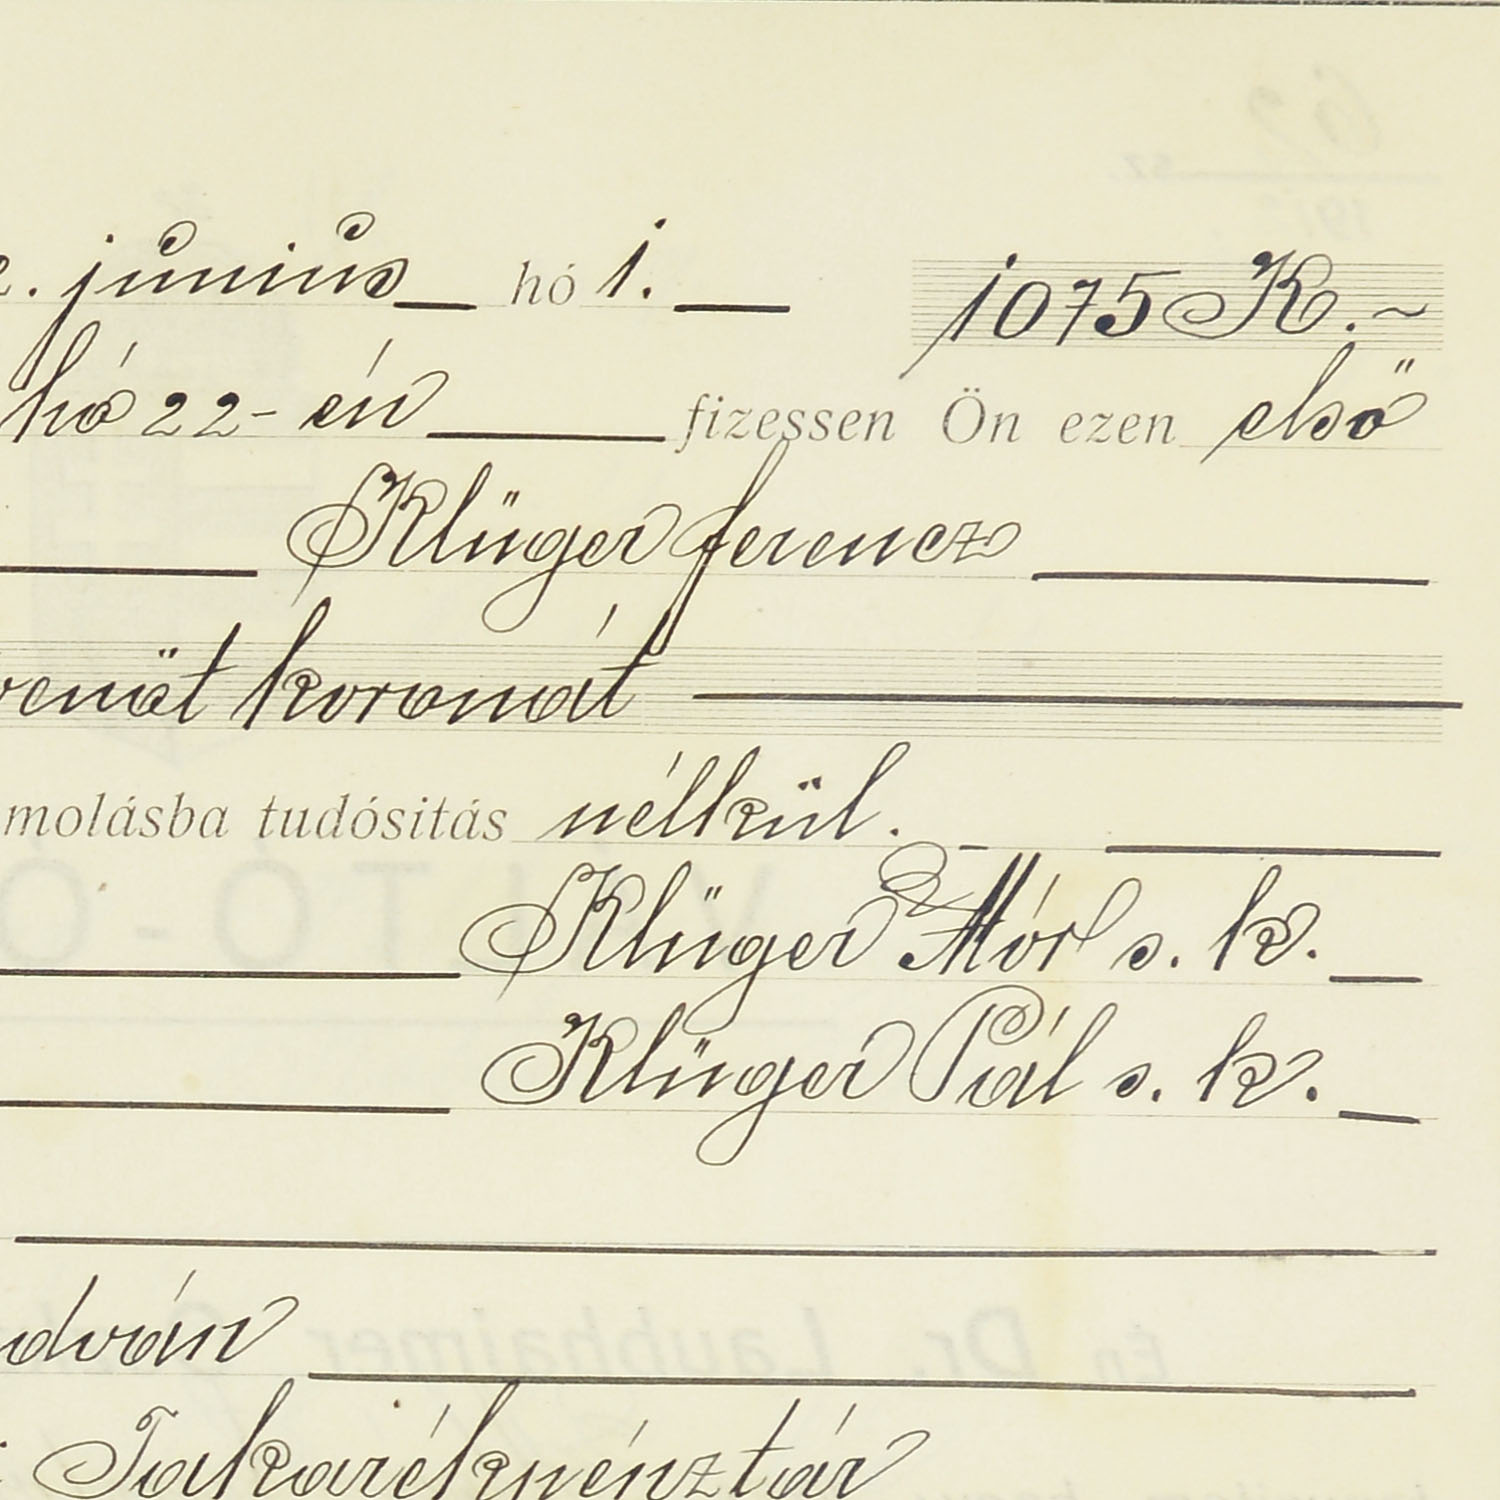 . június hó 1. 1075 K.~
hó 22-én fizessen Ön ezen első
Klüger ferencz
venöt koronát
molásba tudósitás nélkül.
Klüger Mór s. k.
Klüger Pál s. k.
udván
Takarékpénztár